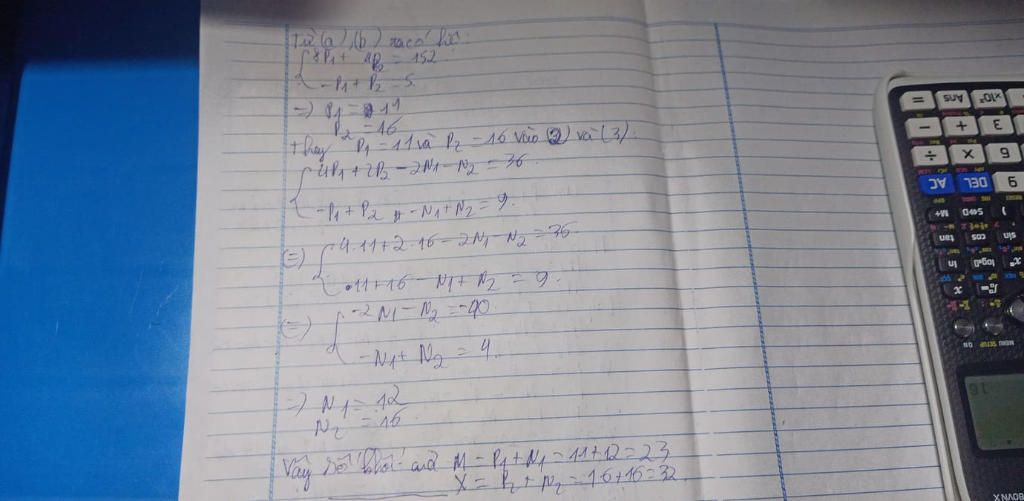 Từ (a), (b) ta có hệ:
8P1 + 4P2 = 152
-P1 + P2 = 5
=> P1 = 11
P2 = 16
+ thay P1 = 11 và P2 = 16 vào (2) và (3):
4P1 + 2P2 - 2N1 - N2 = 36
-P1 + P2 - N1 + N2 = 9
(=) 4.11 + 2.16 - 2N1 - N2 = 36
.11 + 16 - N1 + N2 = 9
(=) -2N1 - N2 = -40
-N1 + N2 = 4
=> N1 = 12
N2 = 16
Vậy số khối của M = P1 + N1 = 11 + 12 = 23
X = P2 + N2 = 16 + 16 = 32
= Ans ×10ˣ
- + 3
÷ × 6
AC DEL 9
M+ S⇔D )
tan cos sin
ln
x
ON MENU SETUP
16